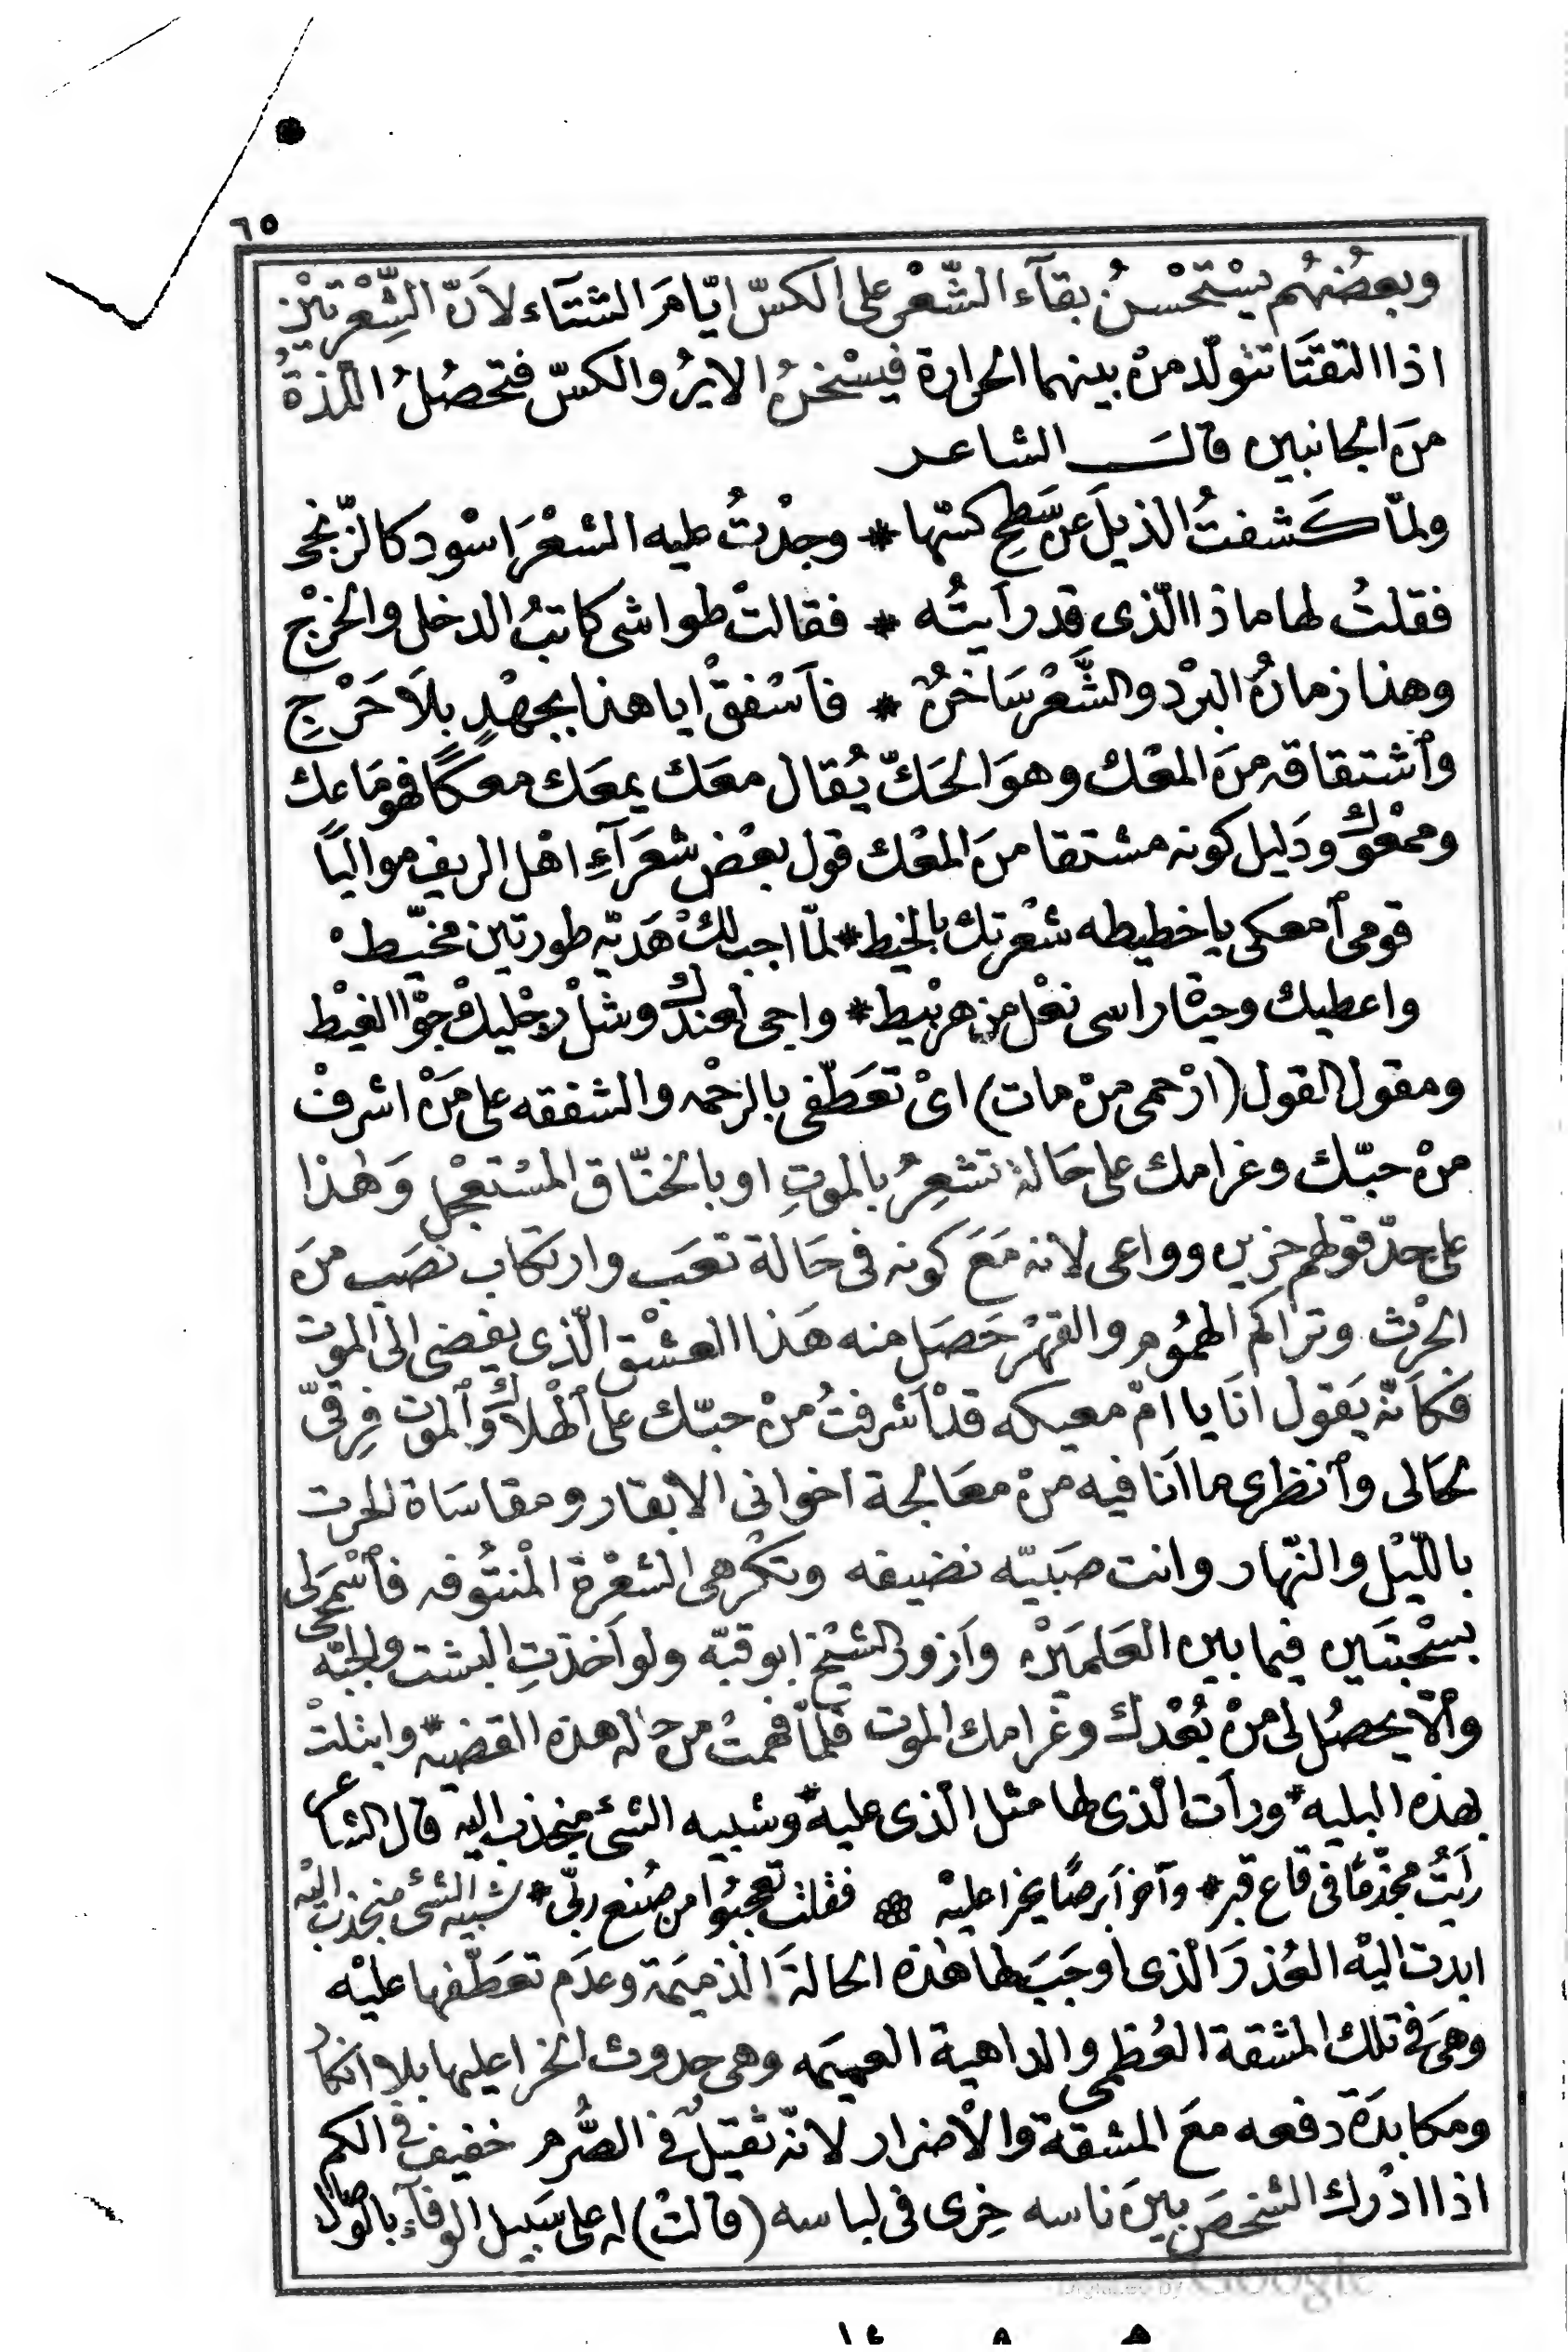 ٦٥
وبعضُهُم يسْتَحْسنُ بقآء الشّعْر على الكسّ ايّامَ الشتآء لاَنّ الشِّعْرتيْن
اذا التقتَا تتولّد منْ بينهما الحرارة فيسْخنُ الايرُ والكسّ فتحصُلُ اللّذةُ
منَ الجانبين قالَ الشاعر
ولمّا كَشفتُ الذيلَ عن سَطحِ كسّها * وجدْتُ عليه الشعْرَ اسْود كالزّنجى
فقلتُ لها ماذا الّذى قد رأيتُه * فقالتْ طواشى كاتبُ الدخل والخرْج
وهذا زمانُ البرْد والشَّعْر سَاخنٌ * فآسْفقْ ايا هذا بجهْدٍ بلَا حَرْجِ
وٱشتقاقه منَ المعْك وهوَ الحَكّ يُقال معَك يمعَك معكًا فهو مَاعك
وممْعوك ودَليل كونه مشتقا منَ المعْك قول بعْض شعَرآءِ اهْل الريف مواليًا
قومى ٱمعكى ياخطيطه شعْرتك بالخيط * لمّا اجب لكْ هَديّه طورتين مخيّطْ
واعطيك وحيْاة راسى نعْل من هرْبيط * واجى لعندكْ وشلْ رجْليكْ جوّا الغيْط
ومقول القول (ارْحمى منْ مات) اىْ تعَطّفى بالرحْمه والشفقه على مَنْ اشرفْ
منْ حبّك وغرامك على حَالةٍ تشعِرُ بالموتِ او بالخنّاق المسْتعجْل وَهٰذا
على حدّ قولهم حزين وواعى لانه مَعَ كونه فى حَالة تعَب وارتكاب نصَب منَ
الحرْث وتراكم الهمُوم والقهْر حَصَل منه هَذا العشْق الّذى يفضى الى الموت
فكأنّه يَقول انَا يا امّ معيكه قدْ اشرفتُ منْ حبّك على ٱلْهلاك وَٱلموت فِرقىّ
لحَالى وٱنظرى ما اَنا فيه منْ معَالجة اخوانى الابقار ومقاسَاة الحرت
باللّيْل والنّهار وانت صَبيّه نضيفه وتكْرهى الشعْرة المنْتُوفه فٱسْمحى لى
بسْحْبتَين فيما بين العَلمَيْن وَازور الشيْخ ابو قبّه ولو اَخذتِ البشت والجبّه
وٱلّا يحصُل لى منْ بُعْدك وغرامك الموت فلمّا فهمتْ من حاله هذه القضيّه * وابتلتْ
بهذه البليه * ورأت الّذى لها مثل الّذى عليه * وشبيه الشئ منجذب اليه قال الشاعر
رَايتُ مجذّمًا فى قاع قبر * وآخر اَبرصًا يخرا عليْه * فقلت تعجّبُوا من صُنع ربّى * شبيه الشئ منجذب اليْه
ابدت اليْه العُذرَ الّذى اوجَبَ لها هٰذه الحالةَ الذميَمة وعدَم تعَطّفها عليْه
وهىَ فى تلك المشقة العُظمى والداهية العميَمه وهى حدوث الخرا عليها بلا انكار
ومكابدَة دفعه معَ المشقة والْاضرار لانّه ثقيلٌ فى الصُّرم خفيف فى الكم
اذا ادْرك الشخصَ بينَ ناسه خِرى فى لباسه (قالتْ) له على سَبيل الوفآء بالوصال